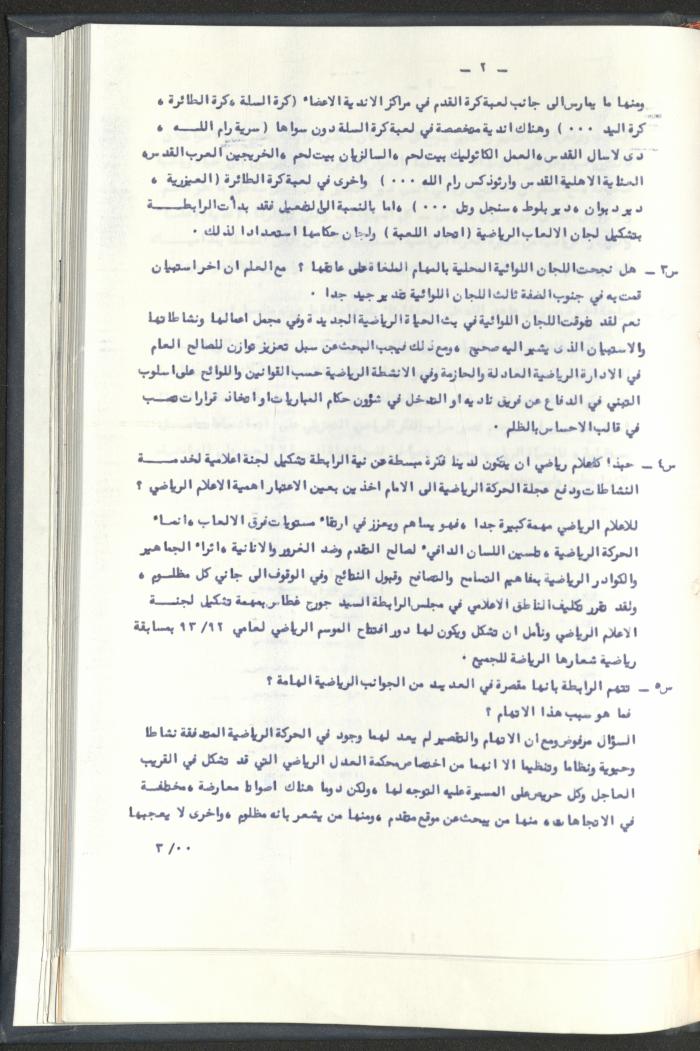 - ٢ -
ومنها ما يمارس الى جانب لعبة كرة القدم في مراكز الاندية الاعضاء (كرة السلة ، كرة الطائرة ،
كرة اليد ٠٠٠) وهناك اندية متخصصة في لعبة كرة السلة دون سواها (سرية رام اللـــه ،
دى لاسال القدس ، العمل الكاثوليك بيت لحم ، السالزيان بيت لحم ، الخريجين العرب القدس ،
العناية الاهلية القدس وارثوذكس رام الله ٠٠٠) واخرى في لعبة كرة الطائرة (العيزرية ،
دير دبوان ، دير بلوط ، سنجل وتل ٠٠٠) ، اما بالنسبة الى التفعيل فقد بدأت الرابطـــة
بتشكيل لجان الالعاب الرياضية (اتحاد اللعبة) ولجان حكامها استعدادا لذلك ٠
س٣ – هل نجحت اللجان اللوائية المحلية بالمهام الملقاة على عاتقها ؟ مع العلم ان اخر استبيان
قمت به في جنوب الضفة ثالث اللجان اللوائية تقدير جيد جدا ٠
نعم لقد تفوقت اللجان اللوائية في بث الحياة الرياضية الجديدة وفي مجمل اعمالها ونشاطاتها
والاستبيان الذى يشير اليه صحيح ، ومع ذلك فيجب البحث عن سبل تعزيز توازن للصالح العام
في الادارة الرياضية العادلة والحازمة وفي الانشطة الرياضية حسب القوانين واللوائح على اسلوب
التبني في الدفاع عن فريق ناديه او التدخل في شؤون حكام المباريات او اتخاذ قرارات تصـب
في قالب الاحساس بالظلم ٠
س٤ – حبذا كاعلام رياضي ان يتكون لدينا فكرة مبسطة عن نية الرابطة تشكيل لجنة اعلامية لخدمـــة
النشاطات ودفع عجلة الحركة الرياضية الى الامام اخذين بعين الاعتبار اهمية الاعلام الرياضي ؟
للاعلام الرياضي مهمة كبيرة جدا ، فهو يساهم ويعزز في ارتقاء مستويات فرق الالعاب ، انمـاء
الحركة الرياضية ، تحسين اللسان الدافيء لصالح التقدم وضد الغرور والانانية ، اثراء الجماهير
والكوادر الرياضية بمفاهيم التسامح والتصافح وقبول النتائج وفي الوقوف الى جاني كل مظلـوم ،
ولقد تقرر تكليف الناطق الاعلامي في مجلس الرابطة السيد جورج غطاس بمهمة تشكيل لجنـــة
الاعلام الرياضي ونأمل ان تشكل ويكون لها دور افتتاح الموسم الرياضي لعامي ٩٣/٩٢ بمسابقة
رياضية شعارها الرياضة للجميع ٠
س٥ – تتهم الرابطة بانها مقصرة في العديد من الجوانب الرياضية الهامة ؟
فما هو سبب هذا الاتهام ؟
السؤال مرفوض ومع ان الاتهام والتقصير لم يعد لهما وجود في الحركة الرياضية المتدفقة نشاطا
وحيوية ونظاما وتنظيما الا انهما من اختصاص محكمة العدل الرياضي التي قد تشكل في القريب
العاجل وكل حريص على المسيرة عليه التوجه لها ، ولكن دوما هناك اصواتا معارضة ، مختلفـة
في الاتجاهات ، منها من يبحث عن موقع متقدم ، ومنها من يشعر بانه مظلوم ، واخرى لا يعجبها
٣/٠٠